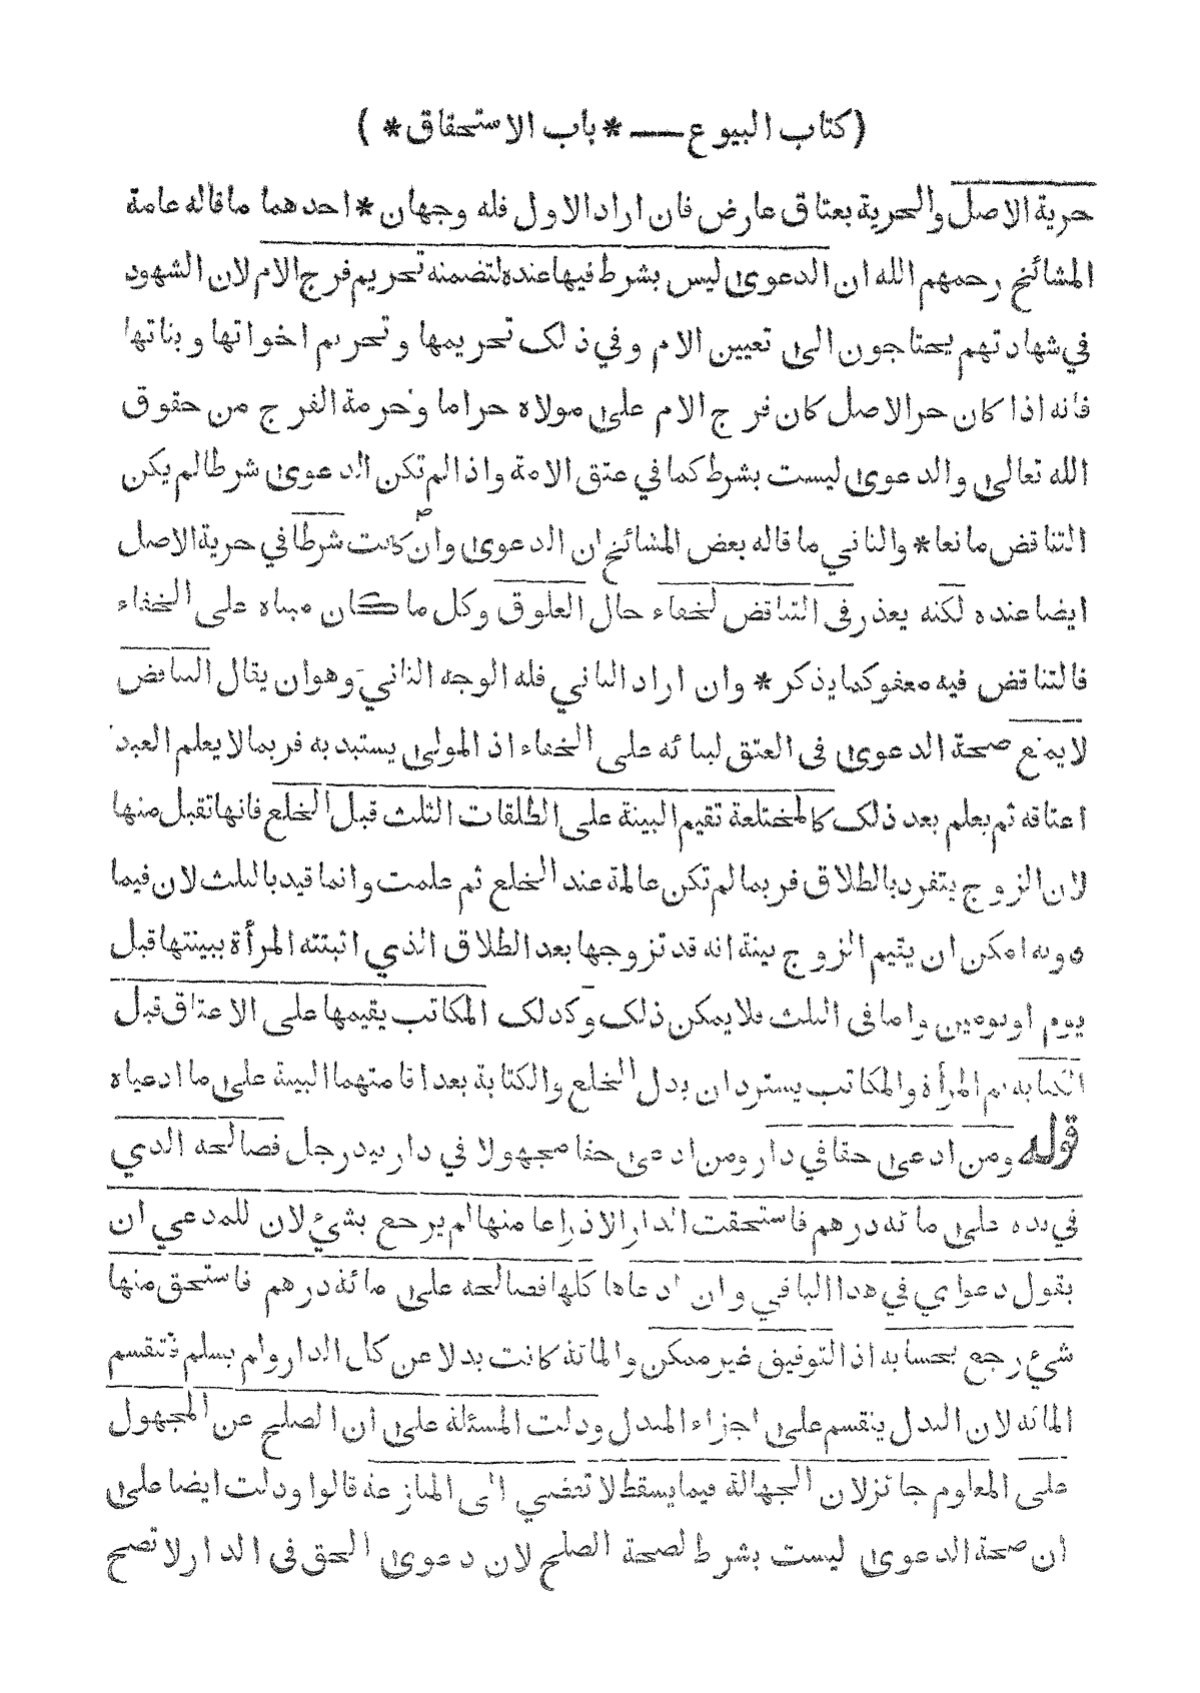 (كتاب البيوع — *باب الاستحقاق* )
حرية الاصل والحرية بعتاق عارض فان اراد الاول فله وجهان * احدهما ما قاله عامة
المشائخ رحمهم الله ان الدعوى ليس بشرط فيها عنده لتضمنه تحريم فرج الام لان الشهود
في شهادتهم يحتاجون الى تعيين الام وفي ذلك تحريمها وتحريم اخواتها وبناتها
فانه اذا كان حر الاصل كان فرج الام على مولاه حراما وحرمة الفرج من حقوق
الله تعالى والدعوى ليست بشرط كما في عتق الامة واذا لم تكن الدعوى شرطا لم يكن
التناقض مانعا * والثاني ما قاله بعض المشائخ ان الدعوى وان كانت شرطا في حرية الاصل
ايضا عنده لكنه يعذر في التناقض لخفاء حال العلوق وكل ما كان مبناه على الخفاء
فالتناقض فيه معفو كما يذكر * وان اراد الثاني فله الوجه الثاني وهو ان يقال التناقض
لا يمنع صحة الدعوى في العتق لبنائه على الخفاء اذ المولى يستبد به فربما لا يعلم العبد
اعتاقه ثم يعلم بعد ذلك كالمختلعة تقيم البينة على الطلقات الثلث قبل الخلع فانها تقبل منها
لان الزوج يتفرد بالطلاق فربما لم تكن عالمة عند الخلع ثم علمت وانما قيد بالثلث لان فيما
دونه امكن ان يقيم الزوج بينة انه قد تزوجها بعد الطلاق الذي اثبتته المرأة ببينتها قبل
يوم او يومين واما في الثلث فلا يمكن ذلك وكذلك المكاتب يقيمها على الاعتاق قبل
الكتابة ثم المرأة والمكاتب يستردان بدل الخلع والكتابة بعد اقامتهما البينة على ما ادعياه
قوله ومن ادعى حقا في دار ومن ادعى حقا مجهولا في دار بيد رجل فصالحه الذي
في يده على مائة درهم فاستحقت الدار الا ذراعا منها لم يرجع بشيء لان للمدعي ان
يقول دعواي في هذا الباقي وان ادعاها كلها فصالحه على مائة درهم فاستحق منها
شيء رجع بحسابه اذ التوفيق غير ممكن والمائة كانت بدلا عن كل الدار ولم يسلم فتقسم
المائة لان البدل ينقسم على اجزاء المبدل ودلت المسئلة على ان الصلح عن المجهول
على المعلوم جائز لان الجهالة فيما يسقط لا تفضي الى المنازعة قالوا ودلت ايضا على
ان صحة الدعوى ليست بشرط لصحة الصلح لان دعوى الحق في الدار لا تصح